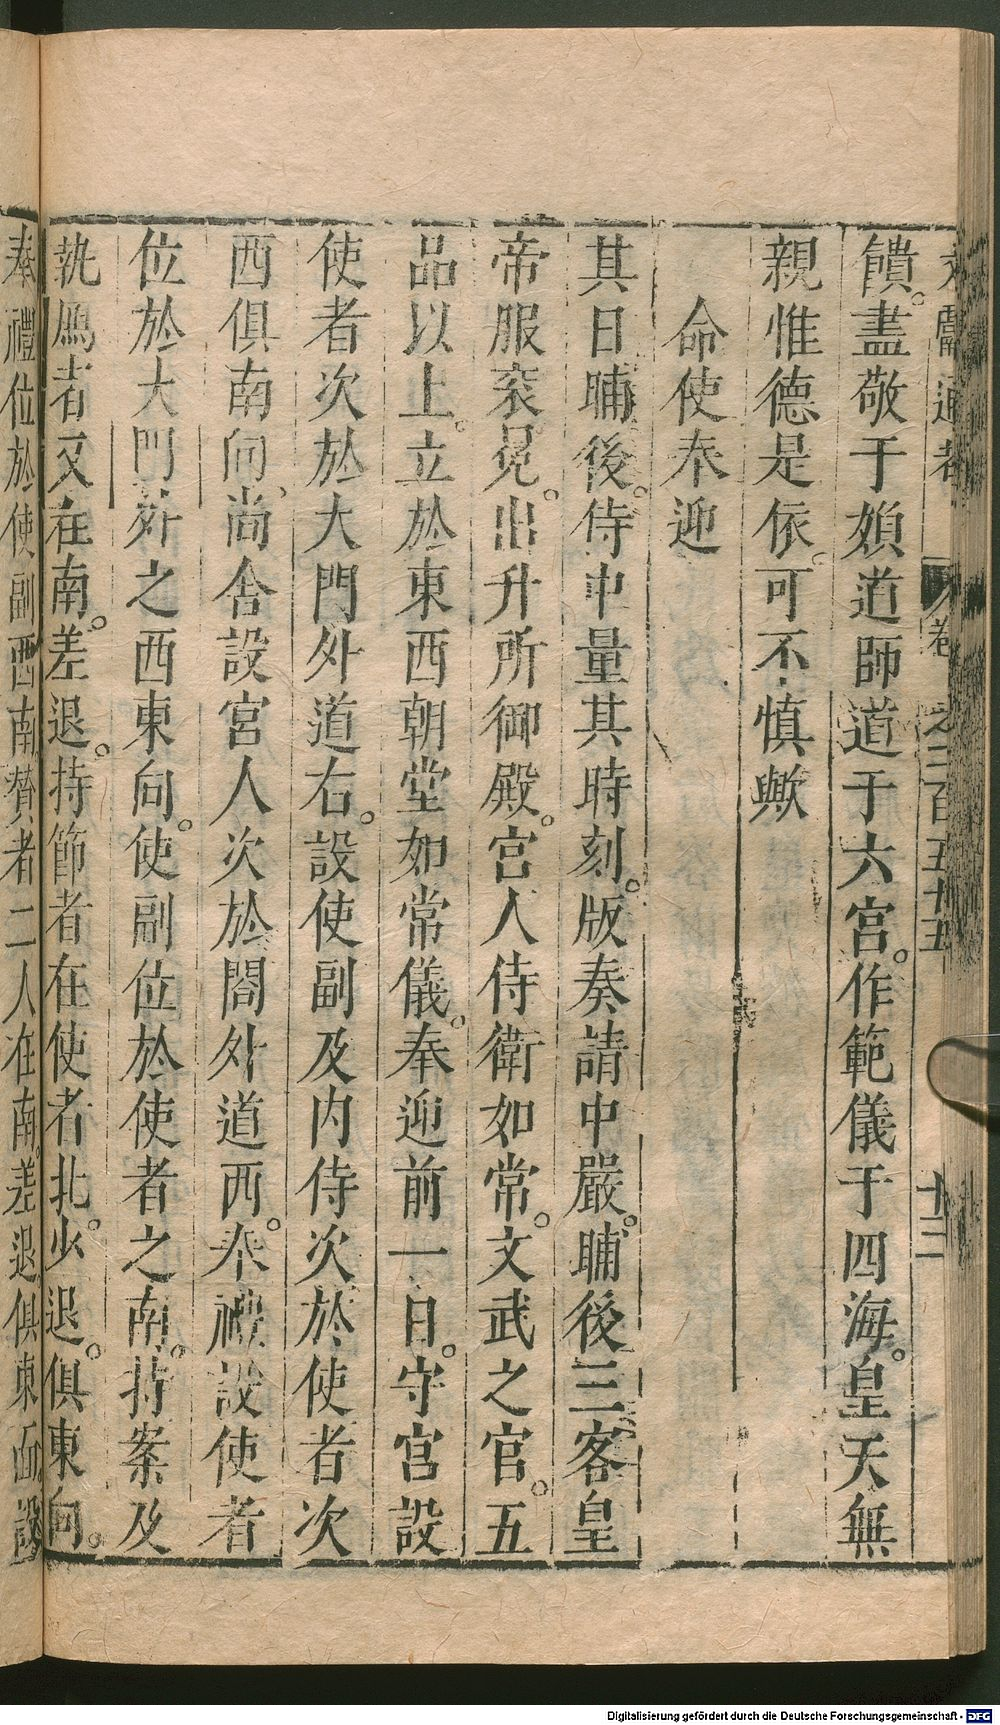 文獻通考 卷之二百五十五 十三
饋。盡敬于媍道師道于六宮。作範儀于四海。皇天無
親惟德是依。可不慎歟
命使奉迎
其日晡後。侍中量其時刻。版奏請中嚴。晡後三客皇
帝服袞冕。出升所御殿。宮人侍衛如常。文武之官。五
品以上。立於東西朝堂如常儀。奉迎前一日。守宮設
使者次於大門外道右。設使副及内侍次於使者次
西俱南向、尚舍設宮人次於閤外道西。奉禮設使者
位於大門外之西東向。使副位於使者之南。持案及
執鴈者又在南。差退。持節者在使者北。少退。俱東向。
奉禮位於使副西南贊者二人在南。差退俱東面。設
Digitalisierung gefördert durch die Deutsche Forschungsgemeinschaft - DFG